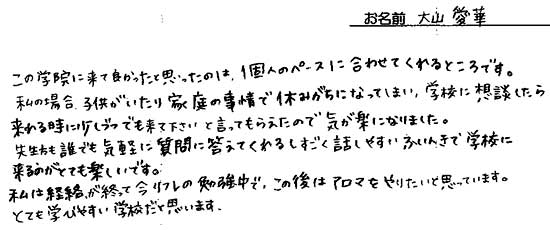 お名前 大山 愛華
この学院に来て良かったと思ったのは、個人のペースに合わせてくれるところです。
私の場合、子供がいたり家庭の事情で休みがちになってしまい、学校に想談したら
来れる時に少しづつでも来て下さいと言ってもらえたので気が楽になりました。
先生方も誰でも気軽に質問に答えてくれるしすごく話しやすいふいんきで学校に
来るのがとても楽しいです。
私は経絡が終って今リフレの勉強中で、この後はアロマをやりたいと思っています。
とても学びやすい学校だと思います。